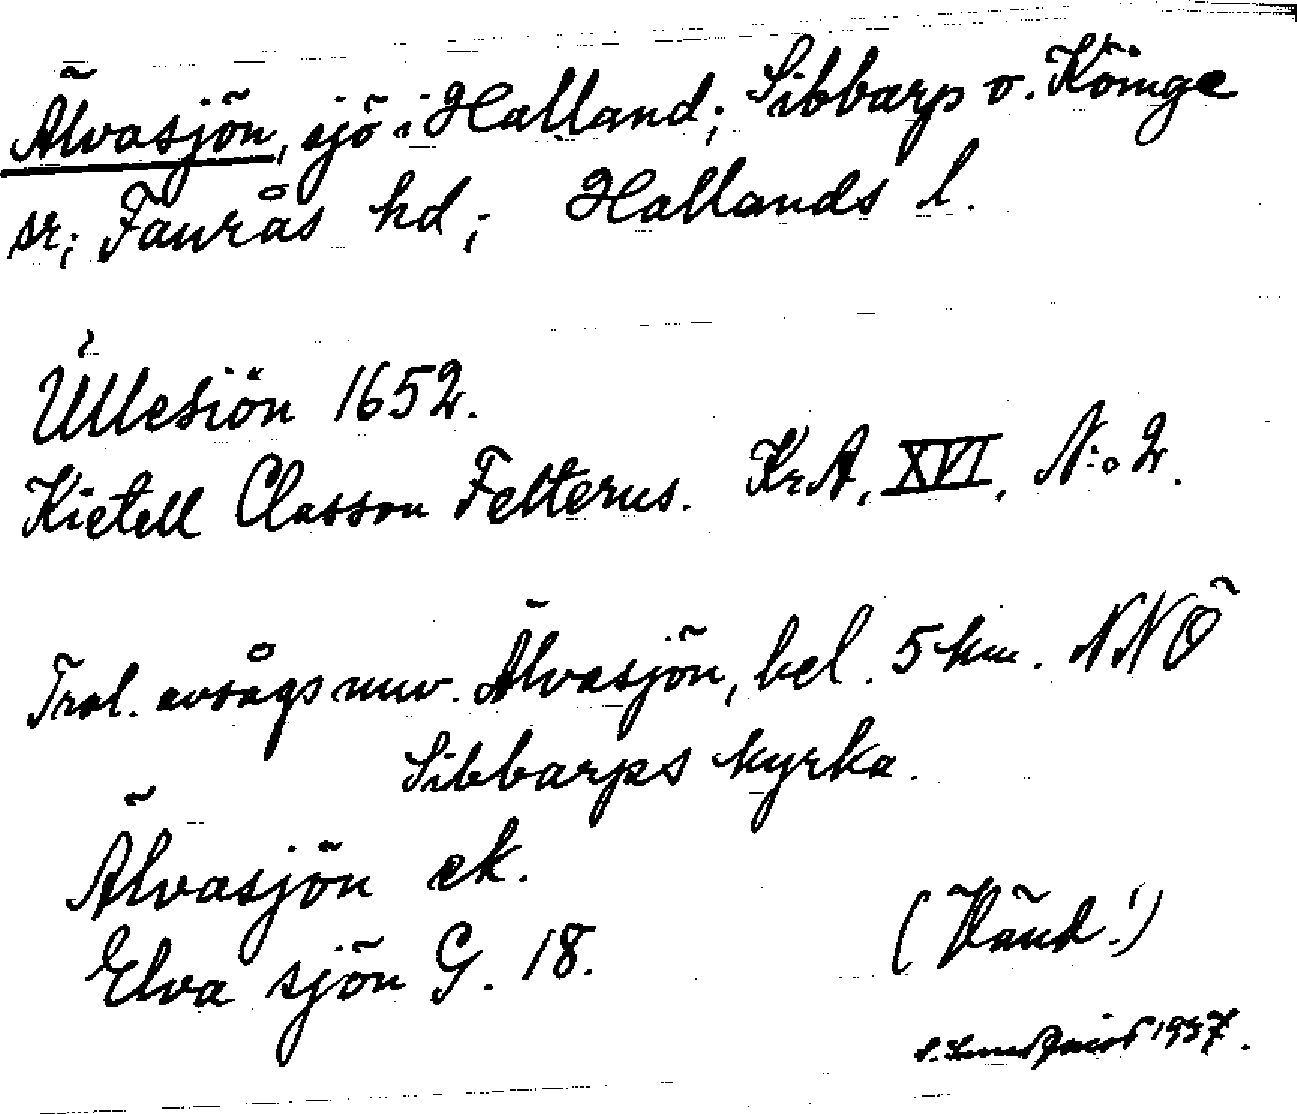 Älvasjön, sjö i Halland; Sibbarp o. Köinge
sr; Faurås hd; Hallands l.
Ullesiön 1652.
Kietell Classon Felterus. KrA, XVI, N:o 2.
Trol. avsågs nuv. Älvasjön, bel. 5 km. NNÖ
Sibbarps kyrka.
Älvasjön ek.
Elva sjön G. 18.
(Vänd!)
1937.